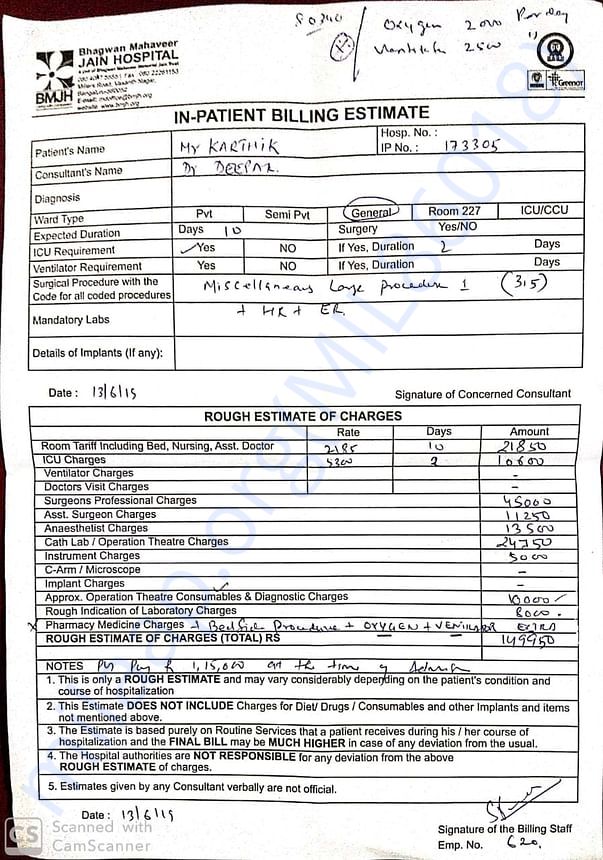 50340
Oxygen 2000 Per day
Ventilator 2500 "
Bhagwan Mahaveer
JAIN HOSPITAL
Millers Road, Vasanth Nagar,
BMJH
IN-PATIENT BILLING ESTIMATE
Patient's Name Mr KARTHIK Hosp. No. :
IP No. : 173305
Consultant's Name Dr DEEPAK
Diagnosis
Ward Type Pvt Semi Pvt General Room 227 ICU/CCU
Expected Duration Days 10 Surgery Yes/NO
ICU Requirement ✓Yes NO If Yes, Duration 2 Days
Ventilator Requirement Yes NO If Yes, Duration Days
Surgical Procedure with the
Code for all coded procedures Miscellaneous Large procedure 1 (315)
+ HR + ER.
Mandatory Labs
Details of Implants (If any):
Date : 13/6/19 Signature of Concerned Consultant
ROUGH ESTIMATE OF CHARGES
Rate Days Amount
Room Tariff Including Bed, Nursing, Asst. Doctor 2185 10 21850
ICU Charges 5300 2 10600
Ventilator Charges -
Doctors Visit Charges -
Surgeons Professional Charges 45000
Asst. Surgeon Charges 11250
Anaesthetist Charges 13500
Cath Lab / Operation Theatre Charges 24750
Instrument Charges 5000
C-Arm / Microscope -
Implant Charges -
Approx. Operation Theatre Consumables & Diagnostic Charges 10000
Rough Indication of Laboratory Charges 8000
x Pharmacy Medicine Charges + Bedside Procedure + OXYGEN + VENTILATOR EXTRA
ROUGH ESTIMATE OF CHARGES (TOTAL) RS 149950
NOTES Pls Pay R 1,15,000 at the time of Admission
1. This is only a ROUGH ESTIMATE and may vary considerably depending on the patient's condition and
course of hospitalization
2. This Estimate DOES NOT INCLUDE Charges for Diet/ Drugs / Consumables and other Implants and items
not mentioned above.
3. The Estimate is based purely on Routine Services that a patient receives during his / her course of
hospitalization and the FINAL BILL may be MUCH HIGHER in case of any deviation from the usual.
4. The Hospital authorities are NOT RESPONSIBLE for any deviation from the above
ROUGH ESTIMATE of charges.
5. Estimates given by any Consultant verbally are not official.
Date : 13/6/19
Signature of the Billing Staff
Emp. No. 620.
CS Scanned with
CamScanner